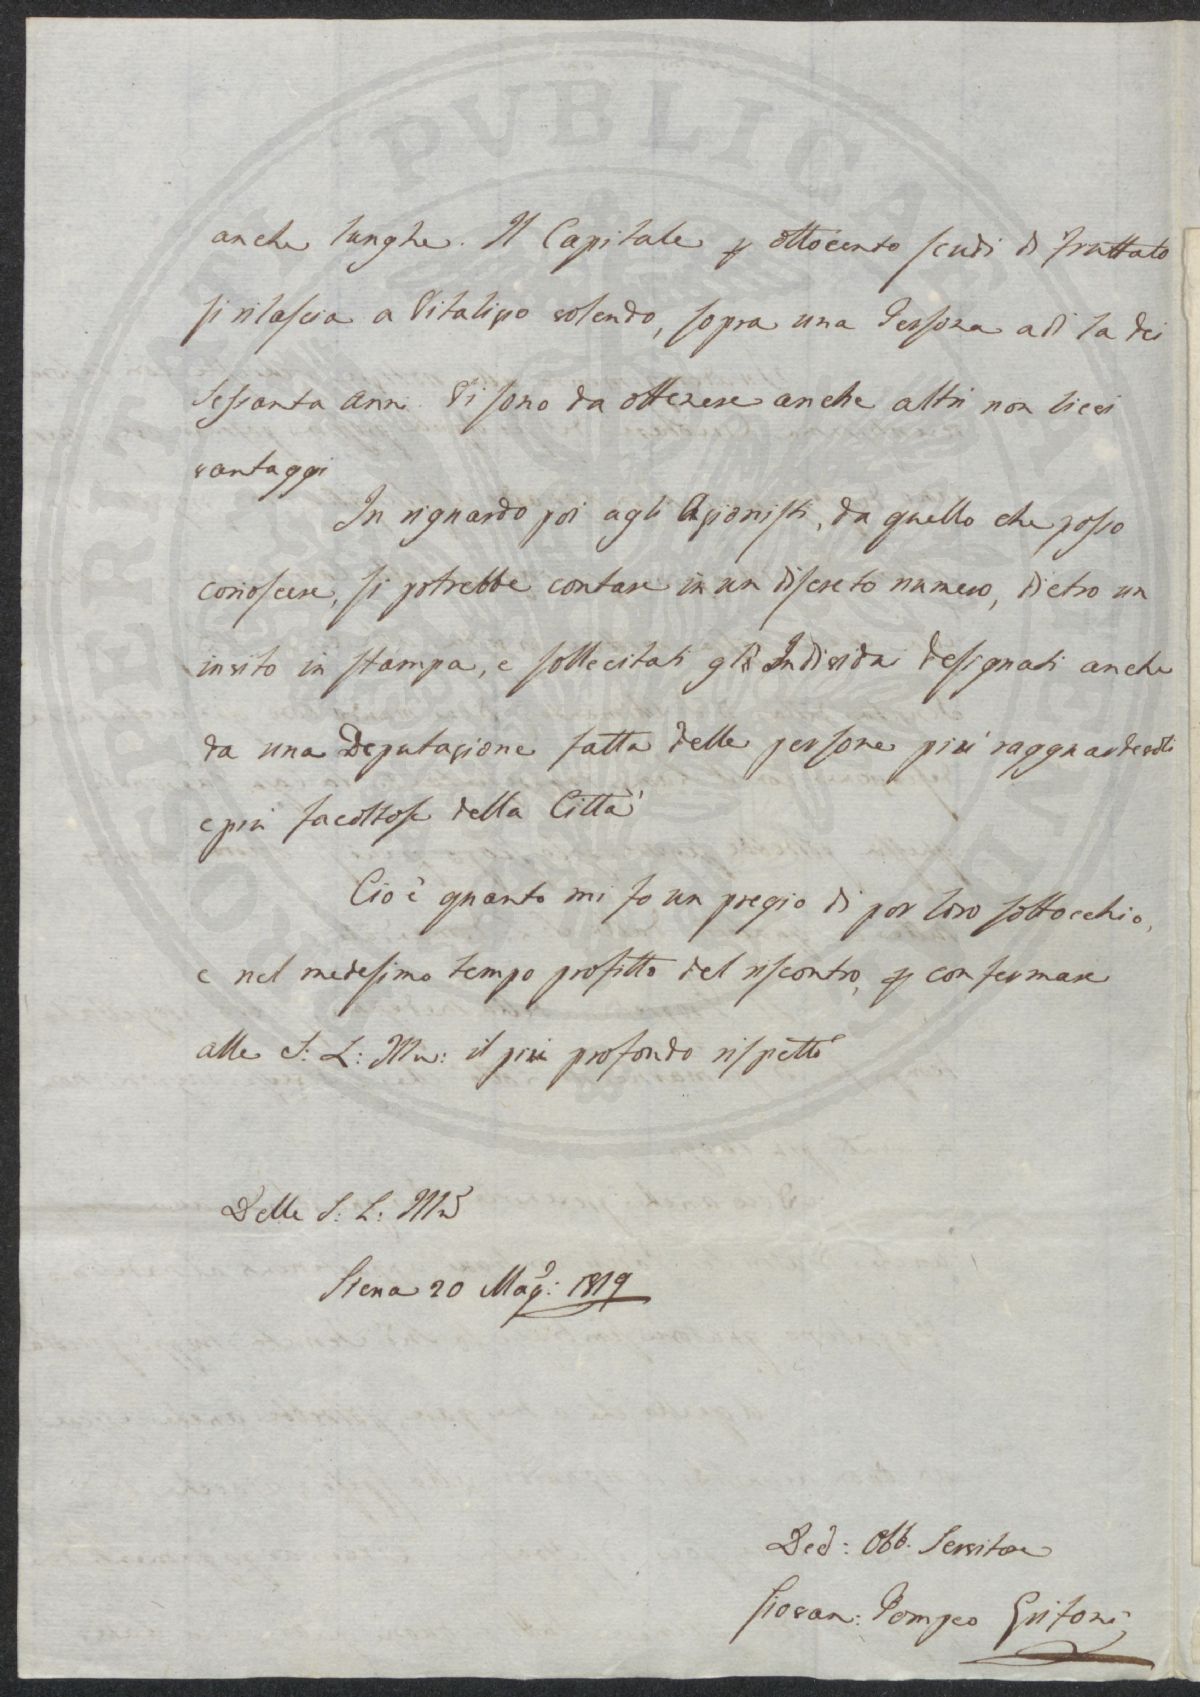 anche lunghe. Il Capitale p ottocento scudi di fruttato
si rilascia a Vitalizio volendo, sopra una Persona a di la dei
Sessanta anni. Vi sono da ottenere anche altri non lievi
vantaggi
In riguardo poi agli Azionisti, da quello che posso
conoscere, si potrebbe contare in un discreto numero, dietro un
invito in stampa, e sollecitati gli Individui designati anche
da una Deputazione fatta delle persone più ragguardevoli
e più facoltose della Città
Ciò è quanto mi fo un pregio di por loro sottocchio,
e nel medesimo tempo profitto del riscontro, p confermare
alle S: L: Ill: il più profondo rispetto
Delle S: L: Ill
Siena 20 Mag: 1819
Ded: Obb. Servitore
Giovan: Pompeo Grifoni
PVBLICA